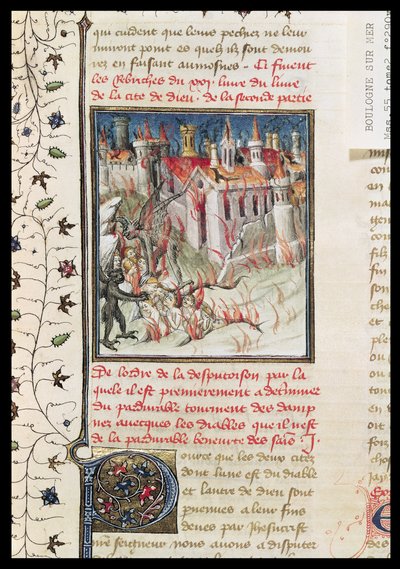 qui cuident que leurs pechez ne leur
nuiront point es quelz ilz sont demou
rez en faisant aumosnes. Ci finent
les Rebriches du xxj. livre du livre
de la cite de dieu. de la seconde partie
De lordre de la desputoison par la
quele il est premierement a determiner
du pardurable tourment des damp
nez avecques les diables que il nest
de la pardurable beneurte des sains. J.
Pource que les deux citez
dont lune est du diable
et lautre de dieu sont
venues a leur fins
deues par Jhesucrist
nre seigneur nous avons a disputer
BOULOGNE SUR MER
Mss 55 tome2 f°290